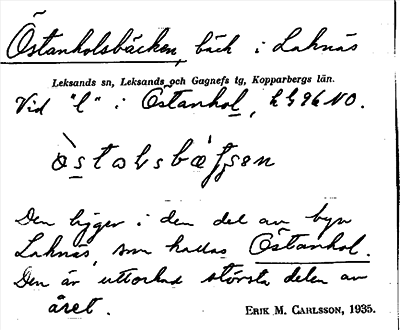 Östanholsbäcken, bäck i Laknäs
Leksands sn, Leksands och Gagnefs tg, Kopparbergs län.
Vid "l" i Östanhol, h G 96 NO.
Den ligger i den del av byn
Laknäs, som kallas Östanhol.
Den är uttorkad största delen av
året.
ERIK M. CARLSSON, 1935.